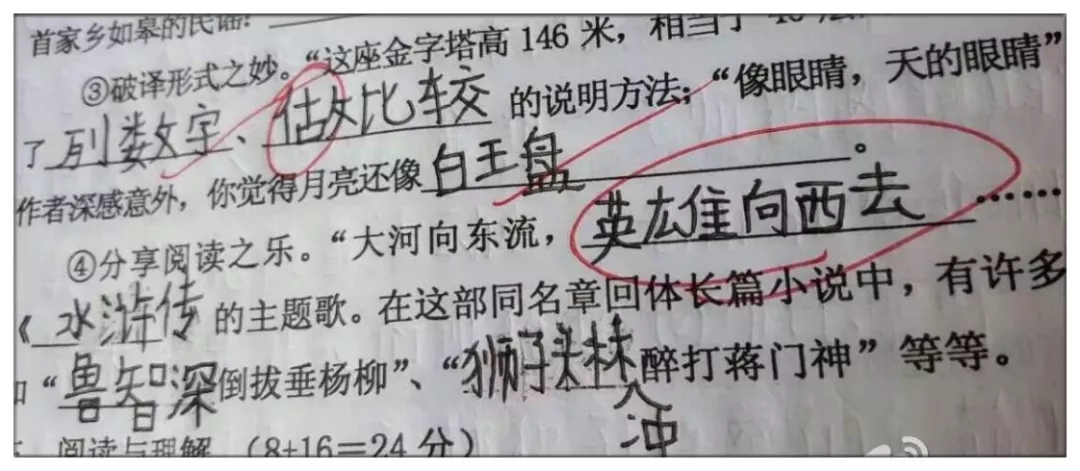 首家乡如皋的民谣：
③破译形式之妙。“这座金字塔高146米，相当于
了列数字、估女比较的说明方法；“像眼睛，天的眼睛”
作者深感意外，你觉得月亮还像白王盘。
④分享阅读之乐。“大河向东流，英雄向西去……
《水浒传的主题歌。在这部同名章回体长篇小说中，有许多
“鲁智深倒拔垂杨柳”、“狮子头林冲醉打蒋门神”等等。
阅读与理解（8+16＝24分）